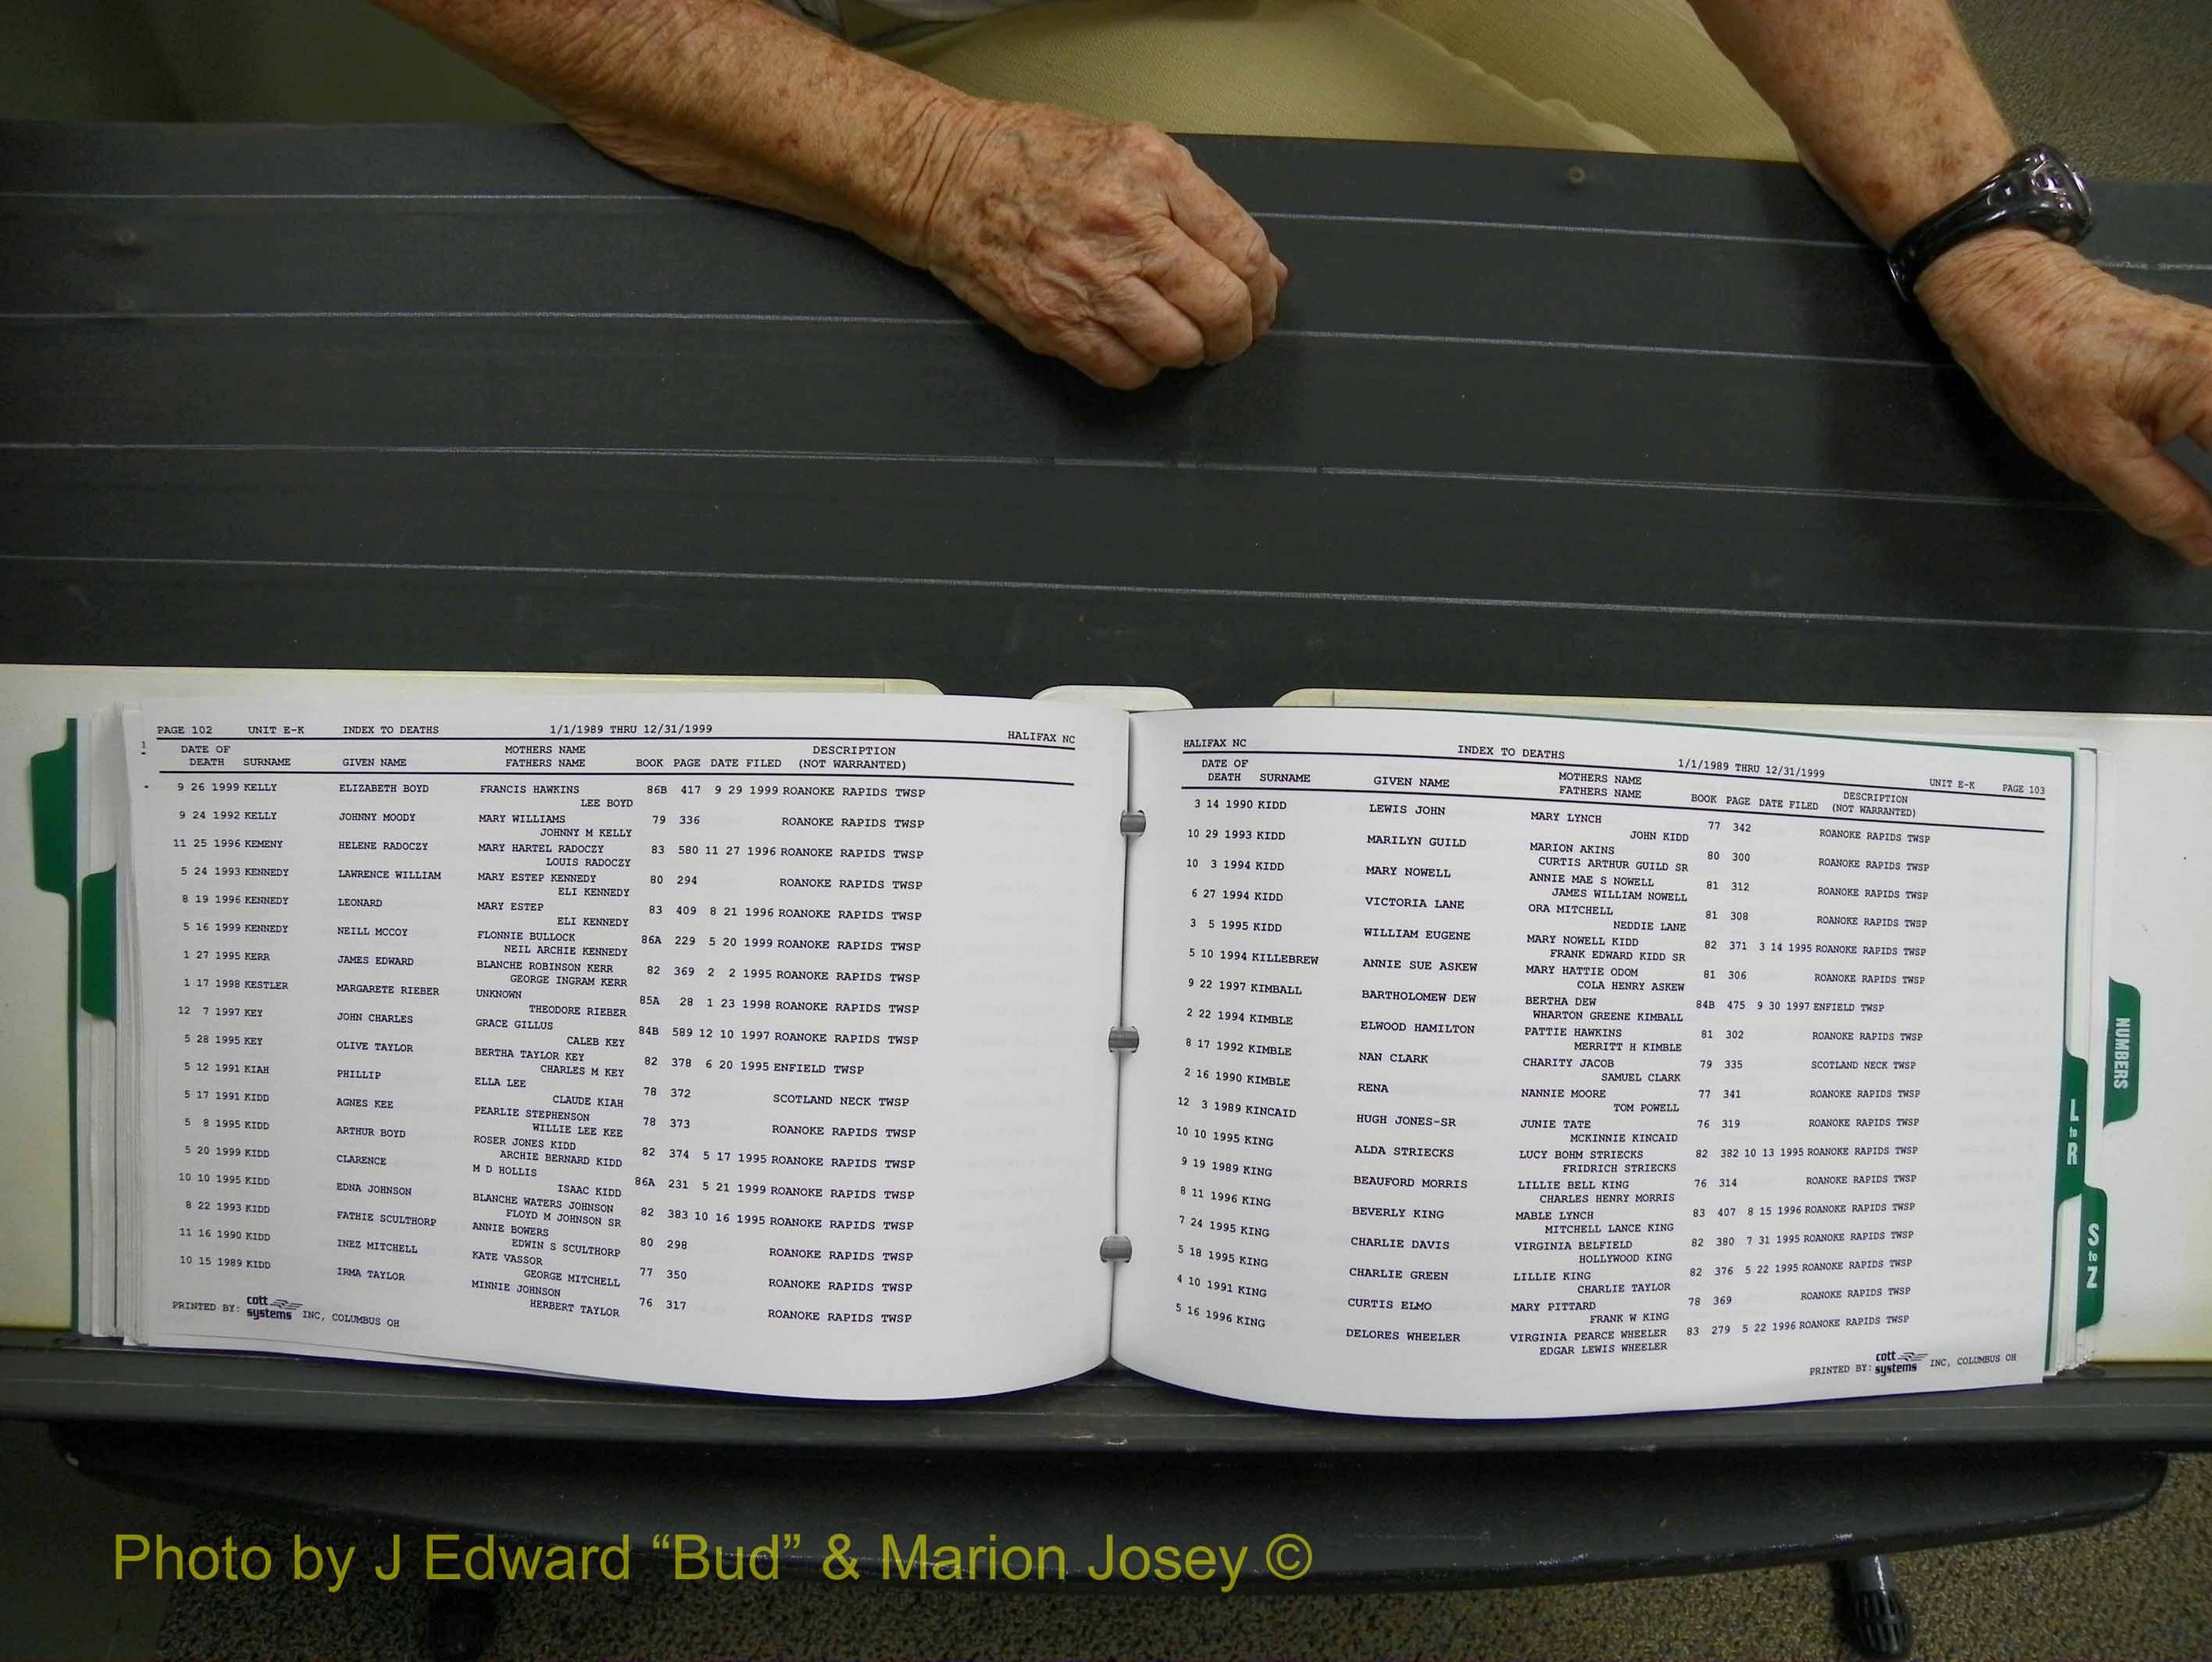 PAGE 102 UNIT E-K INDEX TO DEATHS 1/1/1989 THRU 12/31/1999 HALIFAX NC
DATE OF MOTHERS NAME DESCRIPTION
DEATH SURNAME GIVEN NAME FATHERS NAME BOOK PAGE DATE FILED (NOT WARRANTED)
9 26 1999 KELLY ELIZABETH BOYD FRANCIS HAWKINS 86B 417 9 29 1999 ROANOKE RAPIDS TWSP
LEE BOYD
9 24 1992 KELLY JOHNNY MOODY MARY WILLIAMS 79 336 ROANOKE RAPIDS TWSP
JOHNNY M KELLY
11 25 1996 KEMENY HELENE RADOCZY MARY HARTEL RADOCZY 83 580 11 27 1996 ROANOKE RAPIDS TWSP
LOUIS RADOCZY
5 24 1993 KENNEDY LAWRENCE WILLIAM MARY ESTEP KENNEDY 80 294 ROANOKE RAPIDS TWSP
ELI KENNEDY
8 19 1996 KENNEDY LEONARD MARY ESTEP 83 409 8 21 1996 ROANOKE RAPIDS TWSP
ELI KENNEDY
5 16 1999 KENNEDY NEILL MCCOY FLONNIE BULLOCK 86A 229 5 20 1999 ROANOKE RAPIDS TWSP
NEIL ARCHIE KENNEDY
1 27 1995 KERR JAMES EDWARD BLANCHE ROBINSON KERR 82 369 2 2 1995 ROANOKE RAPIDS TWSP
GEORGE INGRAM KERR
1 17 1998 KESTLER MARGARETE RIEBER UNKNOWN 85A 28 1 23 1998 ROANOKE RAPIDS TWSP
THEODORE RIEBER
12 7 1997 KEY JOHN CHARLES GRACE GILLUS 84B 589 12 10 1997 ROANOKE RAPIDS TWSP
CALEB KEY
5 28 1995 KEY OLIVE TAYLOR BERTHA TAYLOR KEY 82 378 6 20 1995 ENFIELD TWSP
CHARLES M KEY
5 12 1991 KIAH PHILLIP ELLA LEE 78 372 SCOTLAND NECK TWSP
CLAUDE KIAH
5 17 1991 KIDD AGNES KEE PEARLIE STEPHENSON 78 373 ROANOKE RAPIDS TWSP
WILLIE LEE KEE
5 8 1995 KIDD ARTHUR BOYD ROSER JONES KIDD 82 374 5 17 1995 ROANOKE RAPIDS TWSP
ARCHIE BERNARD KIDD
5 20 1999 KIDD CLARENCE M D HOLLIS 86A 231 5 21 1999 ROANOKE RAPIDS TWSP
ISAAC KIDD
10 10 1995 KIDD EDNA JOHNSON BLANCHE WATERS JOHNSON 82 383 10 16 1995 ROANOKE RAPIDS TWSP
FLOYD M JOHNSON SR
8 22 1993 KIDD FATHIE SCULTHORP ANNIE BOWERS 80 298 ROANOKE RAPIDS TWSP
EDWIN S SCULTHORP
11 16 1990 KIDD INEZ MITCHELL KATE VASSOR 77 350 ROANOKE RAPIDS TWSP
GEORGE MITCHELL
10 15 1989 KIDD IRMA TAYLOR MINNIE JOHNSON 76 317 ROANOKE RAPIDS TWSP
HERBERT TAYLOR
PRINTED BY: cott systems INC, COLUMBUS OH
HALIFAX NC INDEX TO DEATHS 1/1/1989 THRU 12/31/1999 UNIT E-K PAGE 103
DATE OF MOTHERS NAME DESCRIPTION
DEATH SURNAME GIVEN NAME FATHERS NAME BOOK PAGE DATE FILED (NOT WARRANTED)
3 14 1990 KIDD LEWIS JOHN MARY LYNCH 77 342 ROANOKE RAPIDS TWSP
JOHN KIDD
10 29 1993 KIDD MARILYN GUILD MARION AKINS 80 300 ROANOKE RAPIDS TWSP
CURTIS ARTHUR GUILD SR
10 3 1994 KIDD MARY NOWELL ANNIE MAE S NOWELL 81 312 ROANOKE RAPIDS TWSP
JAMES WILLIAM NOWELL
6 27 1994 KIDD VICTORIA LANE ORA MITCHELL 81 308 ROANOKE RAPIDS TWSP
NEDDIE LANE
3 5 1995 KIDD WILLIAM EUGENE MARY NOWELL KIDD 82 371 3 14 1995 ROANOKE RAPIDS TWSP
FRANK EDWARD KIDD SR
5 10 1994 KILLEBREW ANNIE SUE ASKEW MARY HATTIE ODOM 81 306 ROANOKE RAPIDS TWSP
COLA HENRY ASKEW
9 22 1997 KIMBALL BARTHOLOMEW DEW BERTHA DEW 84B 475 9 30 1997 ENFIELD TWSP
WHARTON GREENE KIMBALL
2 22 1994 KIMBLE ELWOOD HAMILTON PATTIE HAWKINS 81 302 ROANOKE RAPIDS TWSP
MERRITT H KIMBLE
8 17 1992 KIMBLE NAN CLARK CHARITY JACOB 79 335 SCOTLAND NECK TWSP
SAMUEL CLARK
2 16 1990 KIMBLE RENA NANNIE MOORE 77 341 ROANOKE RAPIDS TWSP
TOM POWELL
12 3 1989 KINCAID HUGH JONES-SR JUNIE TATE 76 319 ROANOKE RAPIDS TWSP
MCKINNIE KINCAID
10 10 1995 KING ALDA STRIECKS LUCY BOHM STRIECKS 82 382 10 13 1995 ROANOKE RAPIDS TWSP
FRIDRICH STRIECKS
9 19 1989 KING BEAUFORD MORRIS LILLIE BELL KING 76 314 ROANOKE RAPIDS TWSP
CHARLES HENRY MORRIS
8 11 1996 KING BEVERLY KING MABLE LYNCH 83 407 8 15 1996 ROANOKE RAPIDS TWSP
MITCHELL LANCE KING
7 24 1995 KING CHARLIE DAVIS VIRGINIA BELFIELD 82 380 7 31 1995 ROANOKE RAPIDS TWSP
HOLLYWOOD KING
5 18 1995 KING CHARLIE GREEN LILLIE KING 82 376 5 22 1995 ROANOKE RAPIDS TWSP
CHARLIE TAYLOR
4 10 1991 KING CURTIS ELMO MARY PITTARD 78 369 ROANOKE RAPIDS TWSP
FRANK W KING
5 16 1996 KING DELORES WHEELER VIRGINIA PEARCE WHEELER 83 279 5 22 1996 ROANOKE RAPIDS TWSP
EDGAR LEWIS WHEELER
PRINTED BY: cott systems INC, COLUMBUS OH
NUMBERS
L to R
S to Z
Photo by J Edward “Bud” & Marion Josey ©